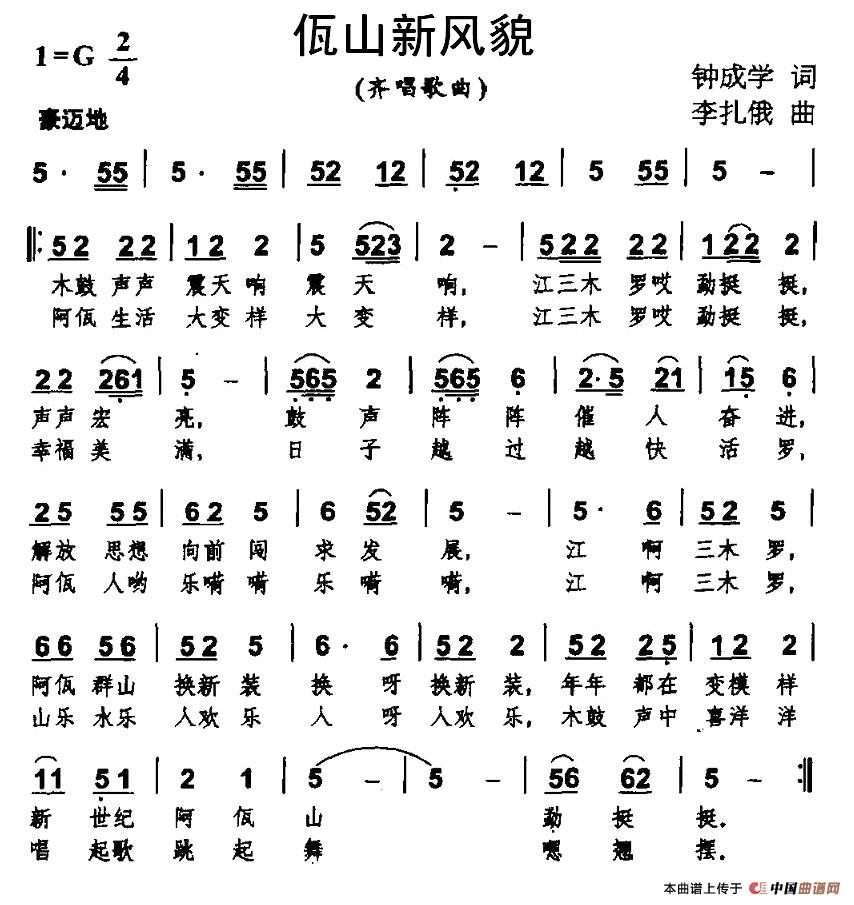 佤山新风貌
1=G 2/4
(齐唱歌曲)
钟成学 词
李扎俄 曲
豪迈地
5· 55 | 5· 55 | 52 12 | 52 12 | 5 55 | 5 – |
‖: 52 22 | 12 2 | 5 523 | 2 – | 522 22 | 122 2 |
木鼓 声声 震天 响 震 天 响, 江三木 罗哎 勐挺 挺,
阿佤 生活 大变 样 大 变 样, 江三木 罗哎 勐挺 挺,
22 261 | 5 – | 565 2 | 565 6 | 2·5 21 | 15 6 |
声声 宏 亮, 鼓 声 阵 阵 催 人 奋 进,
幸福 美 满, 日 子 越 过 越 快 活 罗,
25 55 | 62 5 | 6 52 | 5 – | 5· 6 | 52 5 |
解放 思想 向前 闯 求 发 展, 江 啊 三木 罗,
阿佤 人哟 乐嗬 嗬 乐 嗬 嗬, 江 啊 三木 罗,
66 56 | 52 5 | 6· 6 | 52 2 | 52 25 | 12 2 |
阿佤 群山 换新 装 换 呀 换新 装, 年年 都在 变模 样
山乐 水乐 人欢 乐 人 呀 人欢 乐, 木鼓 声中 喜洋 洋
11 51 | 2 1 | 5 – | 5 – | 56 62 | 5 – :‖
新 世纪 阿 佤 山 勐 挺 挺.
唱 起歌 跳 起 舞 嗯 翘 摆.
本曲谱上传于 中国曲谱网